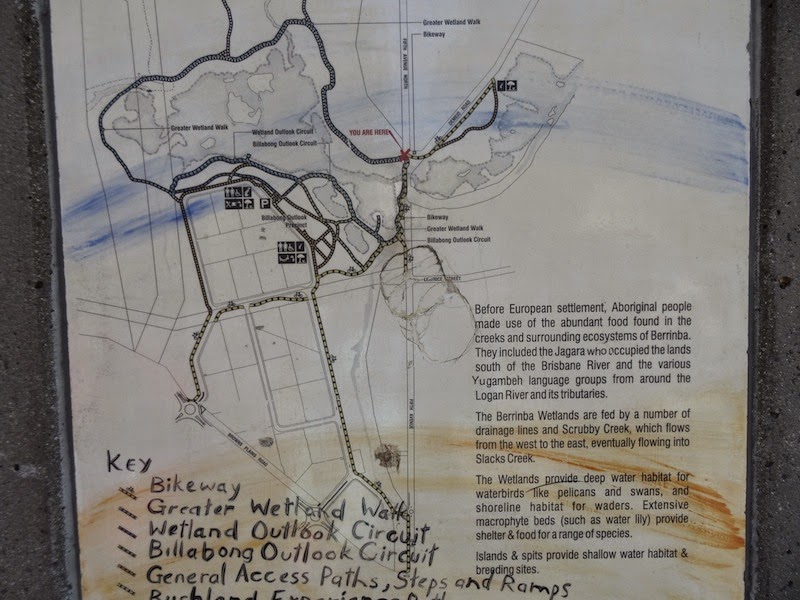 Greater Wetland Walk
Bikeway
FIFTH AVENUE NORTH
YOU ARE HERE
Greater Wetland Walk
Wetland Outlook Circuit
Billabong Outlook Circuit
P
Billabong Outlook
Precinct
Bikeway
Greater Wetland Walk
Billabong Outlook Circuit
FIFTH AVENUE
Before European settlement, Aboriginal people
made use of the abundant food found in the
creeks and surrounding ecosystems of Berrinba.
They included the Jagara who occupied the lands
south of the Brisbane River and the various
Yugambeh language groups from around the
Logan River and its tributaries.
The Berrinba Wetlands are fed by a number of
drainage lines and Scrubby Creek, which flows
from the west to the east, eventually flowing into
Slacks Creek.
The Wetlands provide deep water habitat for
waterbirds like pelicans and swans, and
shoreline habitat for waders. Extensive
macrophyte beds (such as water lily) provide
shelter & food for a range of species.
Islands & spits provide shallow water habitat &
breeding sites.
KEY
Bikeway
Greater Wetland Walk
Wetland Outlook Circuit
Billabong Outlook Circuit
General Access Paths, Steps and Ramps